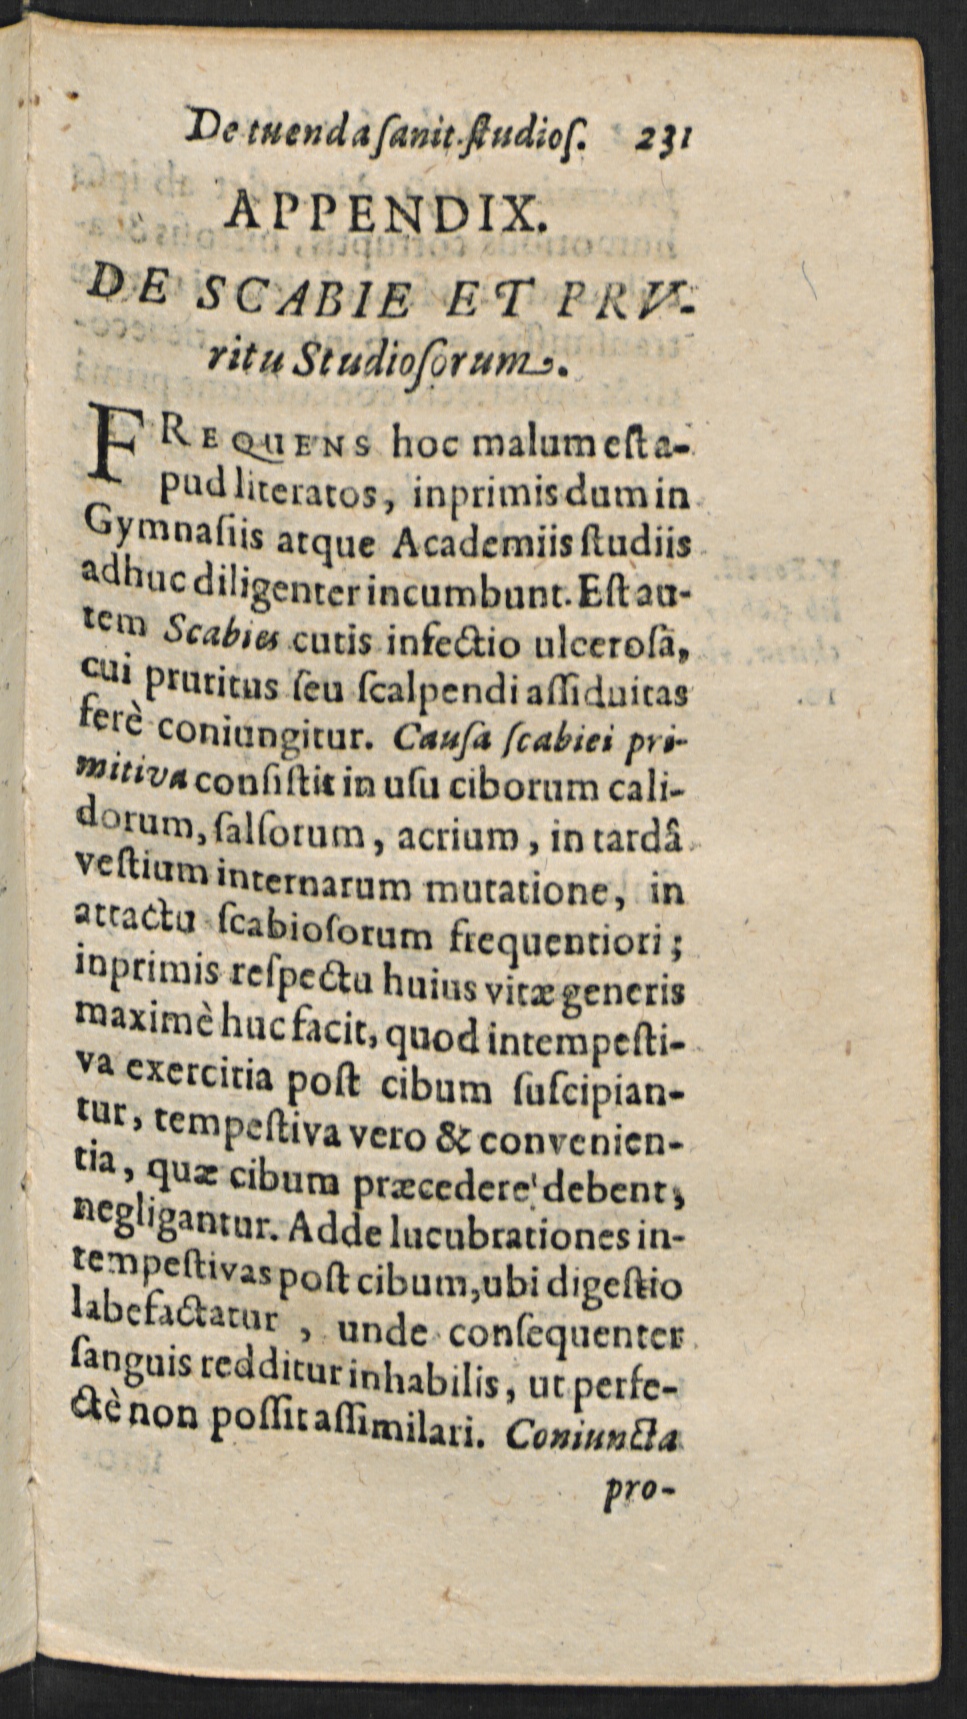 De tuenda ſanit. ſtudioſ. 231
APPENDIX.
DE SCABIE ET PRV-
ritu Studioſorum.
FREQUENS hoc malum eſt a-
pud literatos, inprimis dum in
Gymnaſiis atque Academiis ſtudiis
adhuc diligenter incumbunt. Eſt au-
tem Scabies cutis infectio ulceroſa,
cui pruritus ſeu ſcalpendi aſſiduitas
ferè coniungitur. Cauſa ſcabiei pri-
mitiva conſiſtit in uſu ciborum cali-
dorum, ſalſorum, acrium, in tardâ
veſtium internarum mutatione, in
attactu ſcabioſorum frequentiori;
inprimis reſpectu huius vitæ generis
maximè huc facit, quod intempeſti-
va exercitia poſt cibum ſuſcipian-
tur, tempeſtiva vero & convenien-
tia, quæ cibum præcedere debent,
negligantur. Adde lucubrationes in-
tempeſtivas poſt cibum, ubi digeſtio
labefactatur, unde conſequenter
ſanguis redditur inhabilis, ut perfe-
ctè non poſſit aſſimilari. Coniuncta
pro-